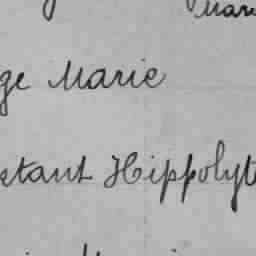 ge Marie
stant Hippolyt